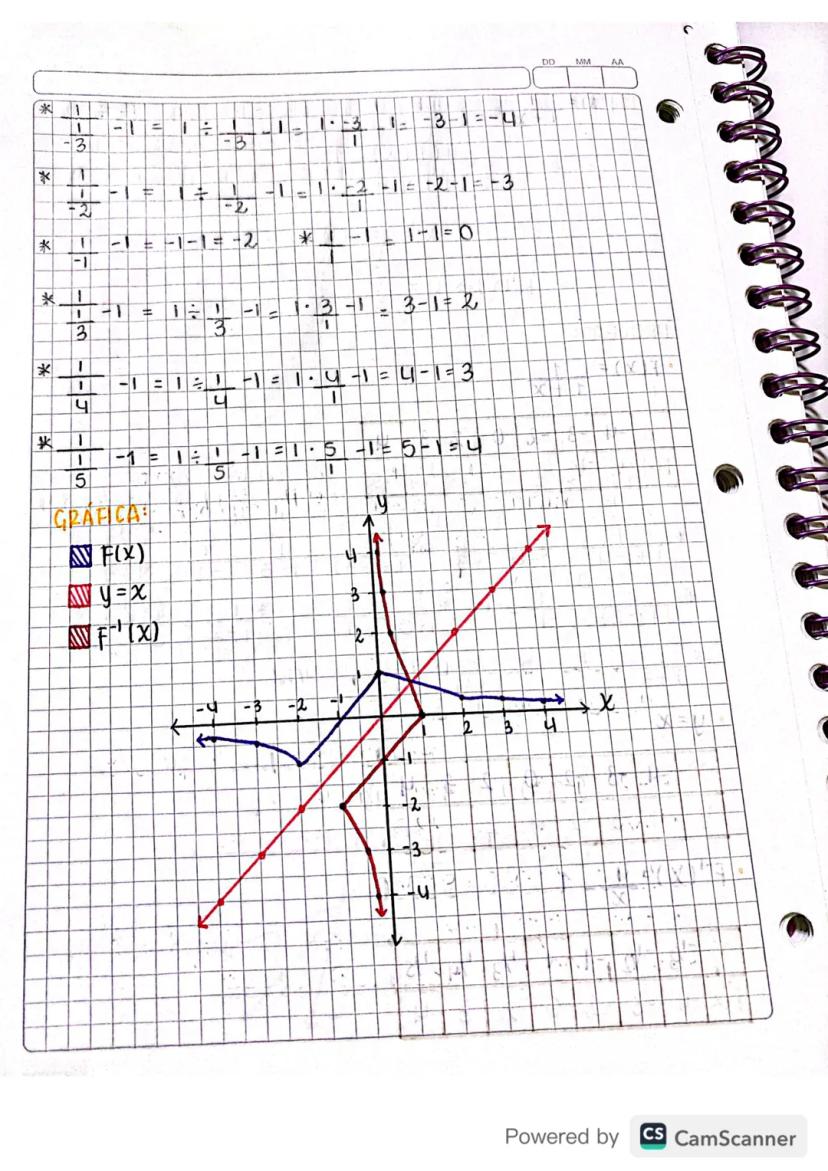 DD MM AA
* 1/(1/-3) -1 = 1 ÷ 1/-3 -1 = 1 · -3/1 -1 = -3-1 = -4
* 1/(1/-2) -1 = 1 ÷ 1/-2 -1 = 1 · -2/1 -1 = -2-1 = -3
* 1/-1 -1 = -1-1 = -2 * 1/1 -1 = 1-1 = 0
* 1/(1/3) -1 = 1 ÷ 1/3 -1 = 1 · 3/1 -1 = 3-1 = 2
* 1/(1/4) -1 = 1 ÷ 1/4 -1 = 1 · 4/1 -1 = 4-1 = 3
* 1/(1/5) -1 = 1 ÷ 1/5 -1 = 1 · 5/1 -1 = 5-1 = 4
GRÁFICA:
F(X)
y=x
F⁻¹(X)
y
4
3
2
1
-4 -3 -2 -1 1 2 3 4 X
-1
-2
-3
-4
Powered by CS CamScanner